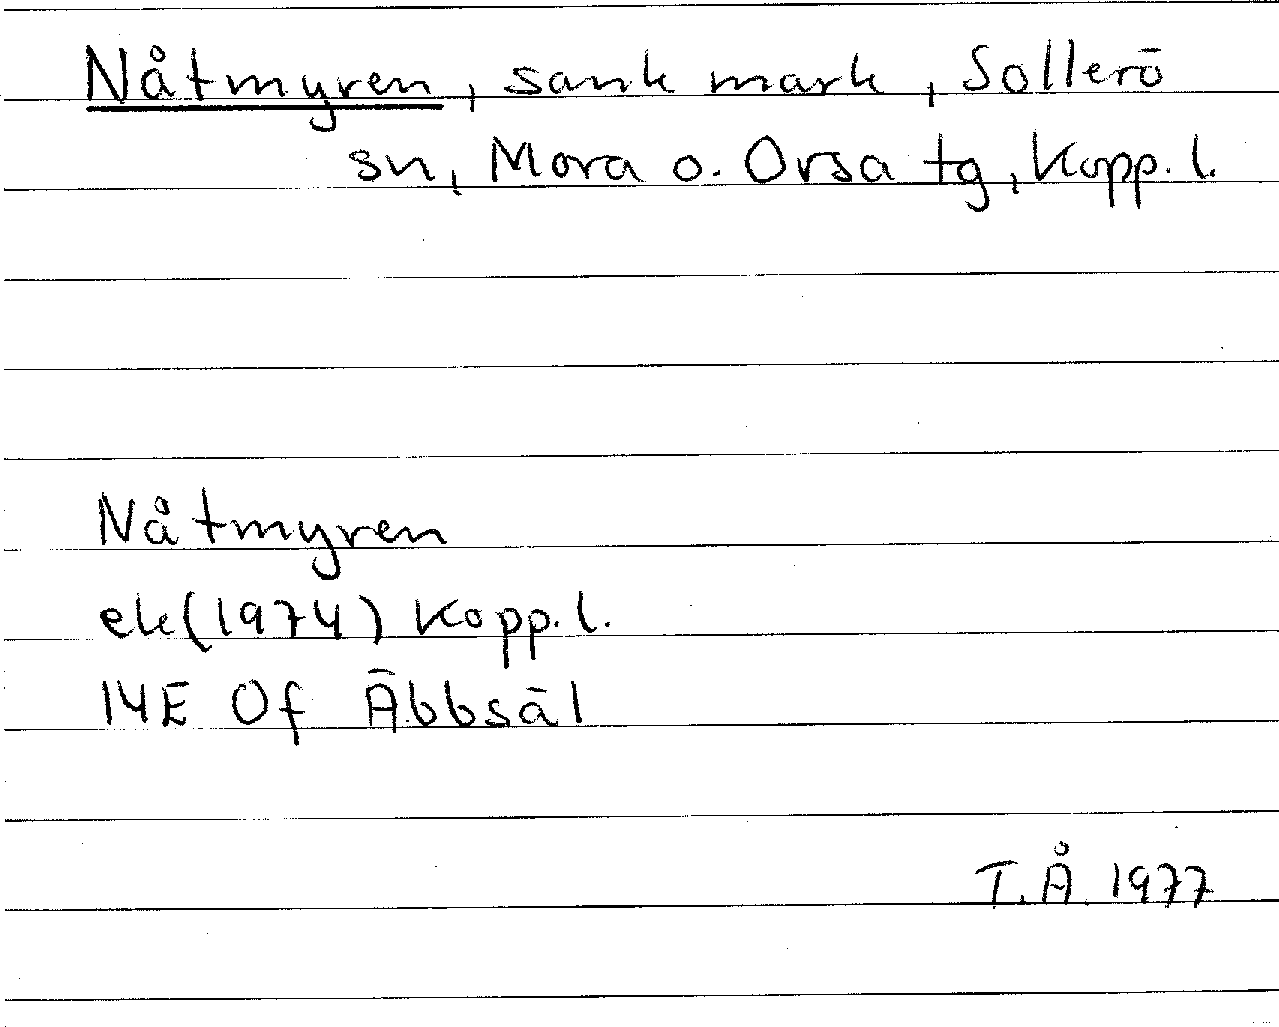 Nåtmyren, sank mark, Sollerö
sn, Mora o. Orsa tg, Kopp. l.
Nåtmyren
ek(1974) Kopp. l.
14E 0f Äbbsäl
T.Å. 1977